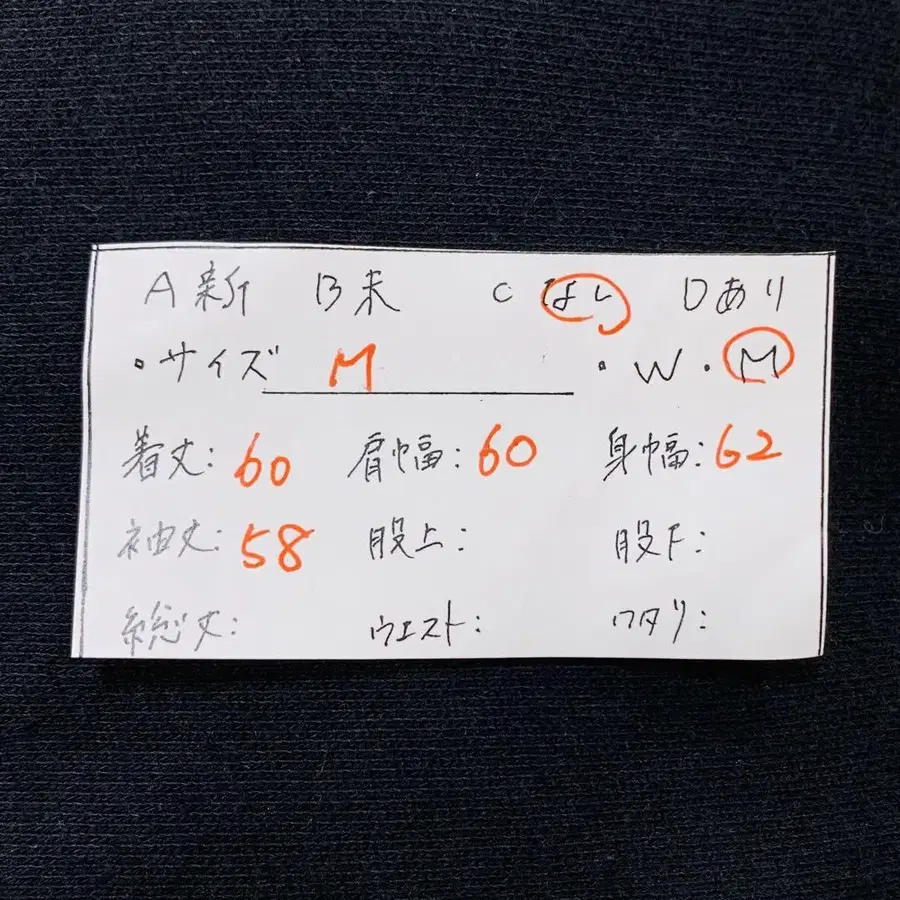 A新 B未 C なし Dあり
・サイズ M ・W・M
着丈: 60 肩幅: 60 身幅: 62
袖丈: 58 股上: 股下:
総丈: ウエスト: ワタリ: